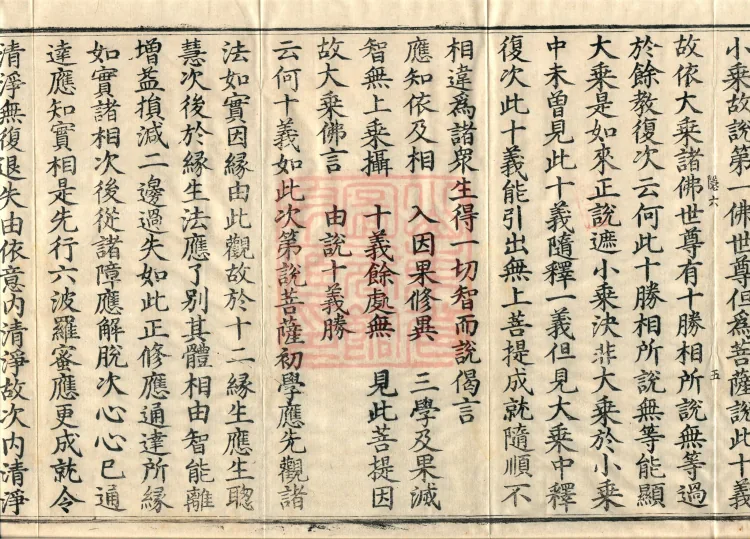 小乗故說第一佛世尊但爲菩薩說此十義
故依大乗諸佛世尊有十勝相所說無等過
於餘教復次云何此十勝相所說無等能顯
大乗是如來正說遮小乗決非大乗於小乗
中未曽見此十義隨釋一義但見大乗中釋
復次此十義能引出無上菩提成就隨順不
相違爲諸衆生得一切智而說偈言
應知依及相　入因果修異　三學及果滅
智無上乗攝　十義餘處無　見此菩提因
故大乗佛言　由說十義勝
云何十義如此次第說菩薩初學應先觀諸
法如實因縁由此觀故於十二縁生應生聦
慧次後於縁生法應了別其體相由智能離
増益損減二邊過失如此正修應通達所縁
如實諸相次後從諸障應解脫次心心巳通
達應知實相是先行六波羅蜜應更成就令
清淨無復退失由依意内清淨故次内清淨
六
五